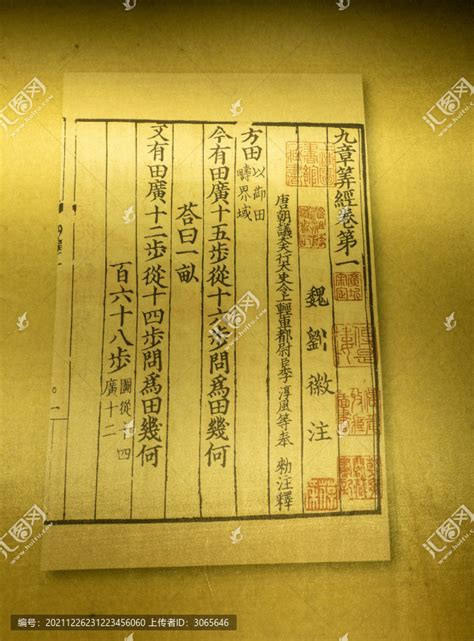 九章筭經卷第一
魏劉徽注
唐朝議大夫行太史令上輕車都尉臣李淳風等奉 勑注釋
方田以御田疇界域
今有田廣十五步從十六步問爲田幾何
荅曰一畝
又有田廣十二步從十四步問爲田幾何
百六十八步圖從十四廣十二
汇图网
www.huitu.com
编号：20211226231223456060 上传者ID：3065646